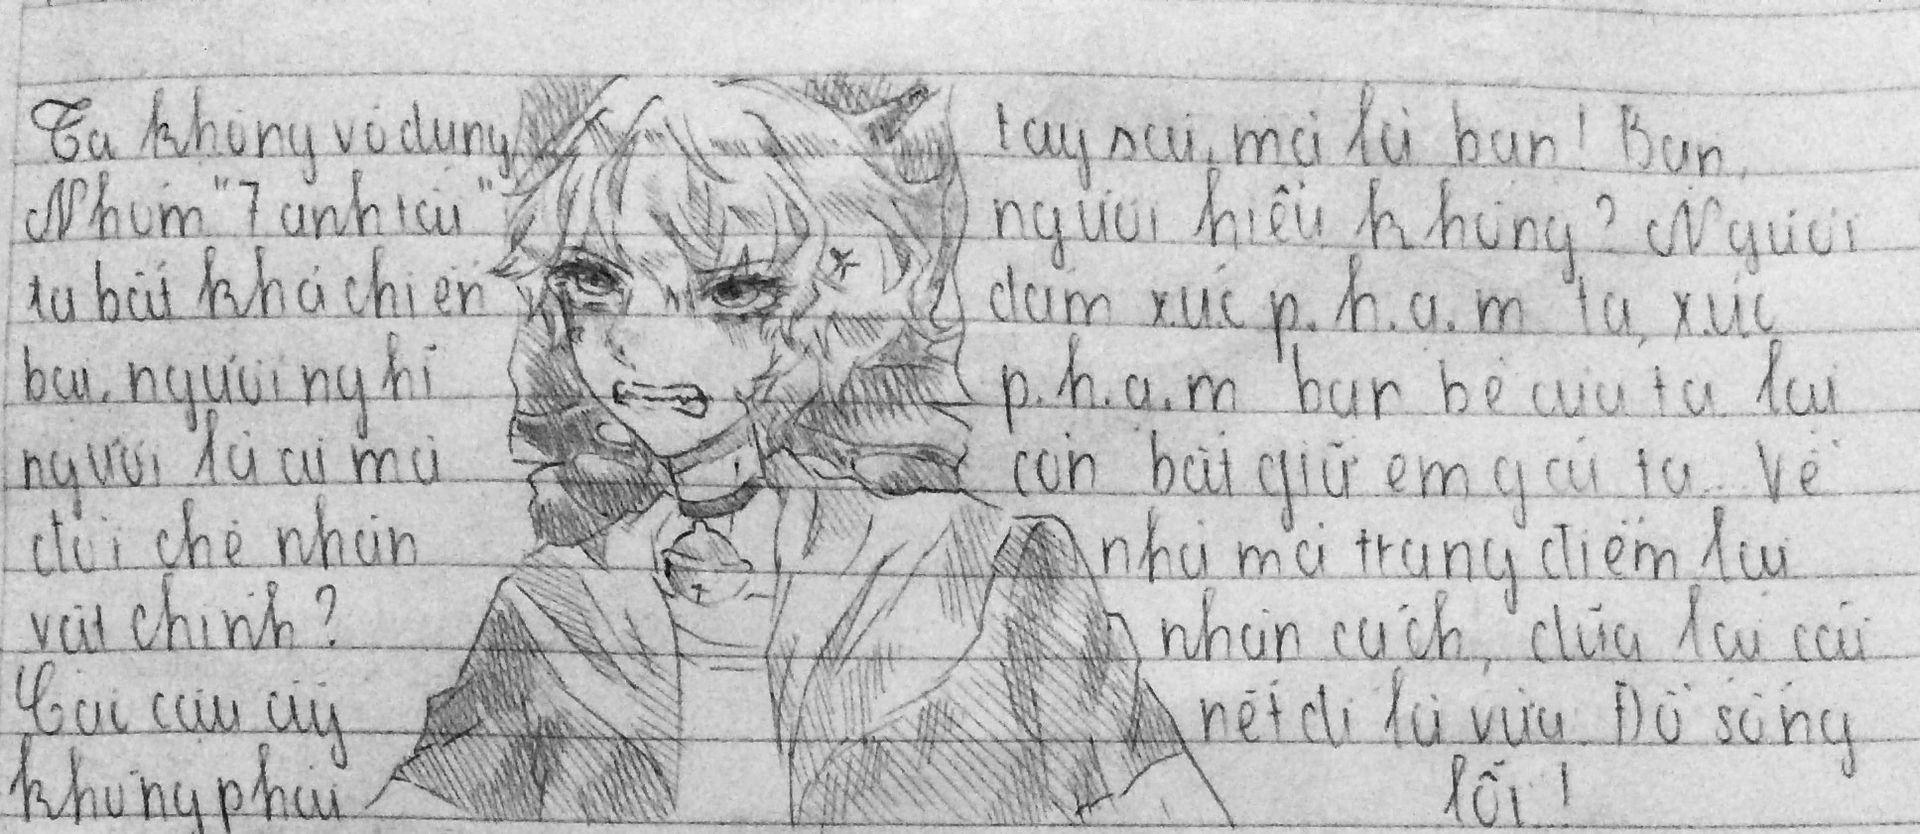 Ta không vô dụng
Nhóm "7 anh tài"
ta bất khả chiến
bại. ngươi nghĩ
ngươi là ai mà
đòi chê nhân
vật chính?
Các cậu ấy
không phải
tay sai, mà là bạn! Bạn,
ngươi hiểu không? Ngươi
dám xúc p.h.ạ.m ta, xúc
p.h.ạ.m bạn bè của ta lại
còn bắt giữ em gái ta. Về
nhà mà trang điểm lại
nhân cách, dũa lại cái
nết đi là vừa. Đồ sống
lỗi!